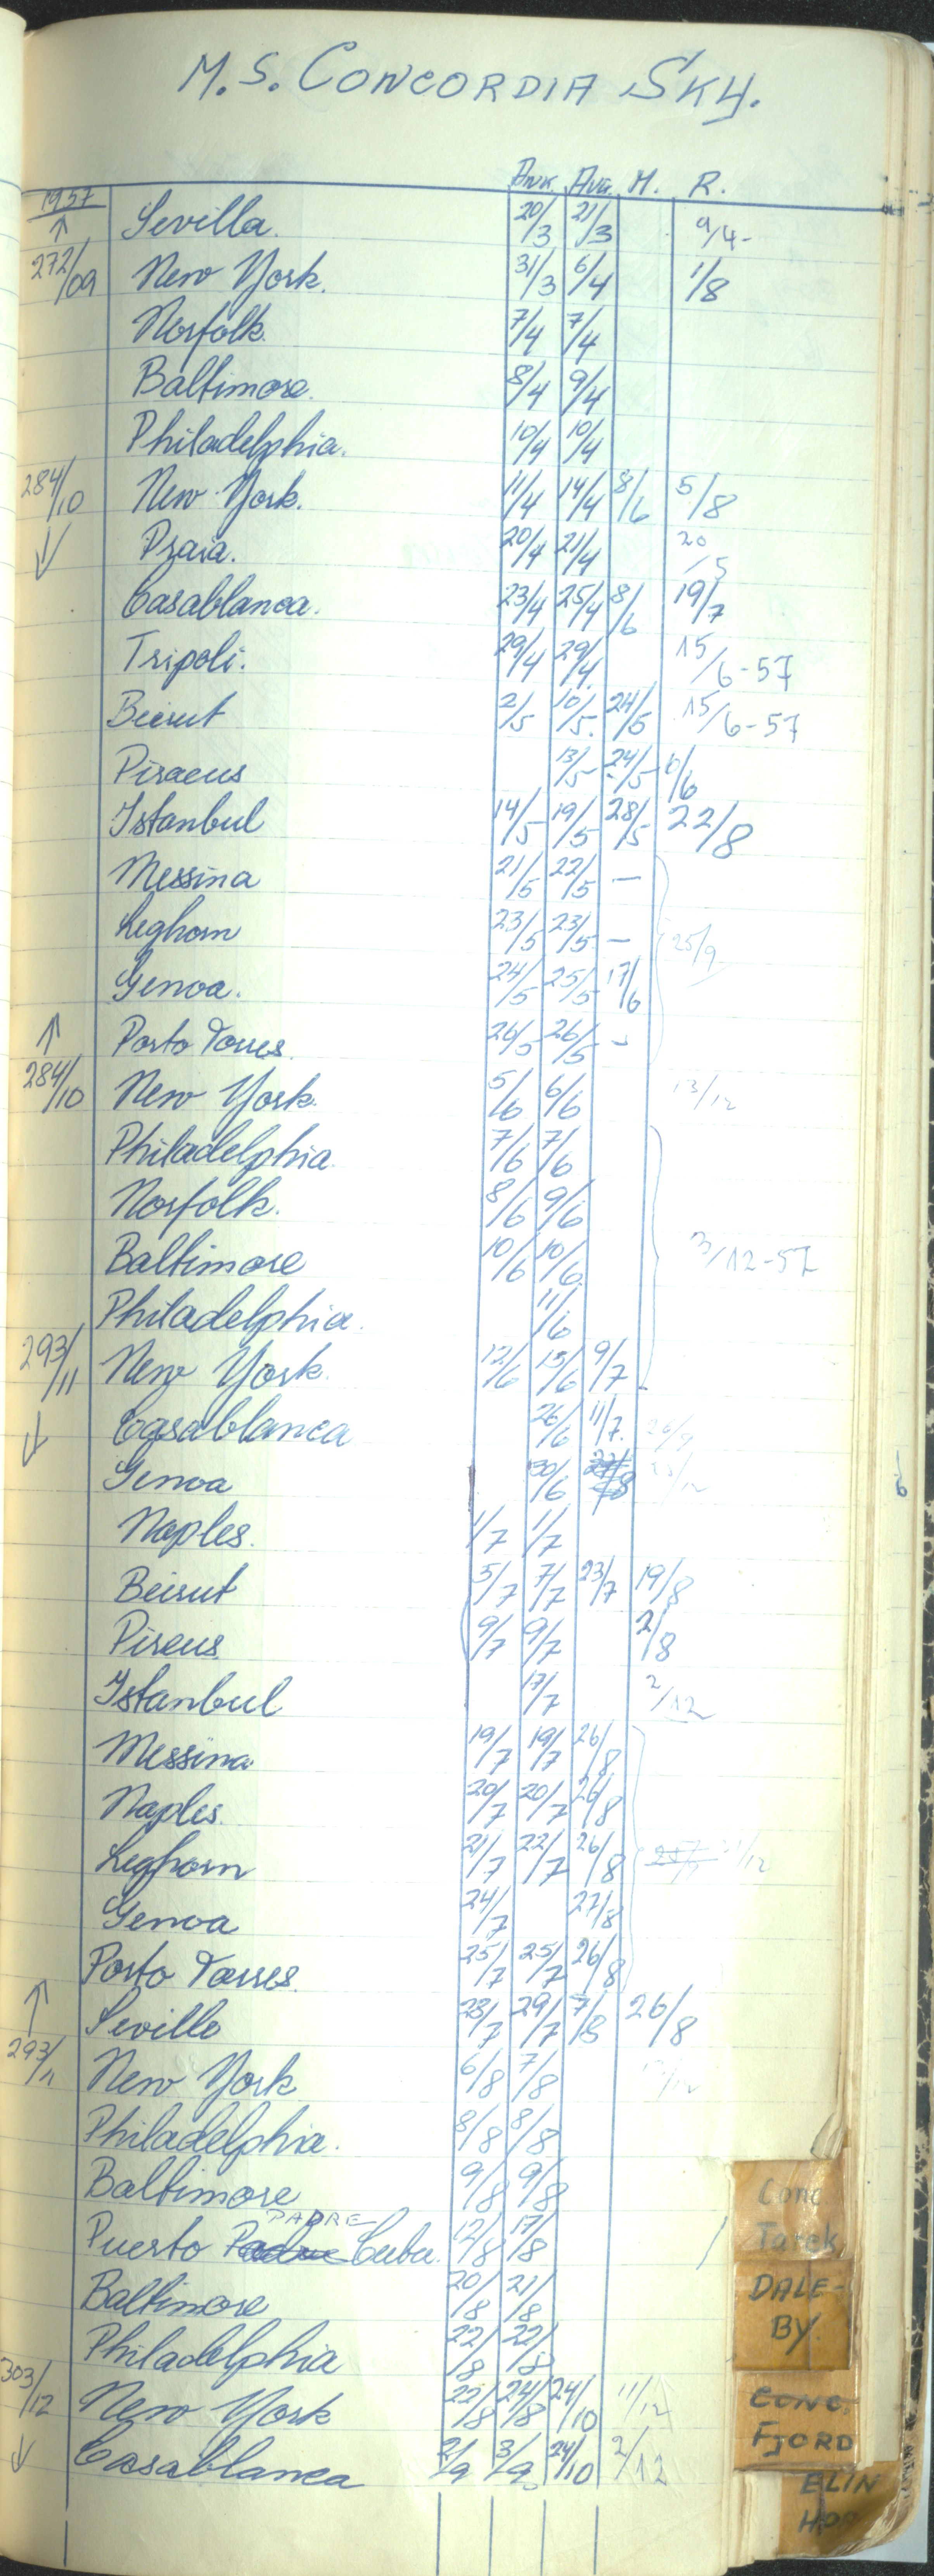 M.S. CONCORDIA SKY.
Ank. Avg. M. R.
1957 ↑ Sevilla. 20/3 21/3 9/4-
272/09 New York. 31/3 6/4 1/8
Norfolk. 7/4 7/4
Baltimore. 8/4 9/4
Philadelphia. 10/4 10/4
284/10 New York. 11/4 14/4 8/6 5/8
↓ Praia. 20/4 21/4 20/5
Casablanca. 23/4 25/4 8/6 19/7
Tripoli. 29/4 29/4 15/6-57
Beirut 2/5 10/5. 24/5 15/6-57
Piraeus 13/5 24/5 6/6
Istanbul 14/5 19/5 28/5 22/8
Messina 21/5 22/5 —
Leghorn 23/5 23/5 — 25/9
Genoa. 24/5 25/5 17/6
↑ Porto Torres. 26/5 26/5 -
284/10 New York. 5/6 6/6 13/12
Philadelphia. 7/6 7/6
Norfolk. 8/6 9/6
Baltimore 10/6 10/6. 3/12-57
Philadelphia. 11/6
293/11 New York. 12/6 15/6 9/7
↓ Casablanca 26/6 11/7. 26/9
Genoa 30/6
Naples. 1/7 1/7
Beirut 5/7 7/7 23/7 19/8
Pireus 9/7 9/7 2/8
Istanbul 17/7 2/12
Messina 19/7 19/7 26/8
Naples. 20/7 20/7 26/8
Leghorn 21/7 22/7 26/8
Genoa 24/7 27/8
Porto Torres. 25/7 25/7 26/8
↑ Sevilla 28/7 29/7 7/8 26/8
293/11 New York 6/8 7/8
Philadelphia. 8/8 8/8
Baltimore 9/8 9/8
PADRE
Puerto Padre Cuba. 12/8 17/8
Baltimore 20/8 21/8
Philadelphia 22/8 22/8
303/12 New York 22/8 24/8 24/10 11/12
↓ Casablanca 2/9 3/9. 24/10 2/12
Conc
Tarek
DALE-
BY.
CONC.
FJORD
ELIN
HOR